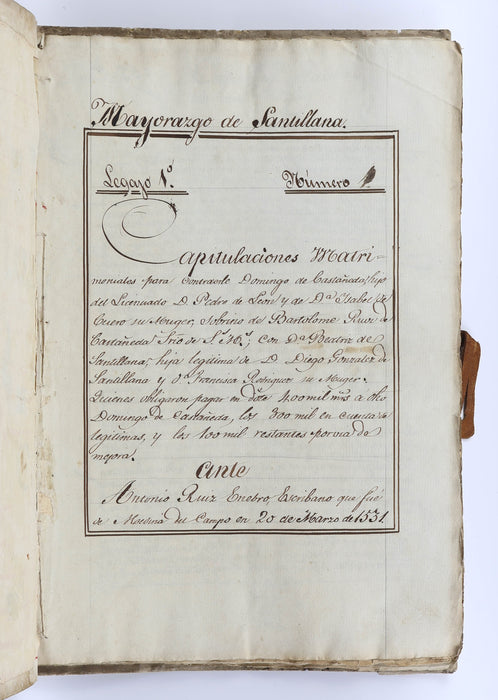 Mayorazgo de Santillana.
Legajo 1º. Número 1
Capitulaciones Matri-
moniales para Contraerle Domingo de Castañeda, hijo
del Licenciado D. Pedro de Leon y de Dª Ysabel de
Cuero su Muger, Sobrino de Bartolome Ruiz de
Castañeda Srio de S. M.; con Dª Beatriz de
Santillana; hija legitima de D. Diego Gonzalez de
Santillana y Dª Francisca Rodriguez su Muger.
Quienes obligaron pagar en dote 400 mil mrs a dho
Domingo de Castañeda, los 300 mil en cuenta de
legitimas, y los 100 mil restantes por via de
mejora.
Ante
Antonio Ruiz Enebro, Escribano que fué
de Medina del Campo en 20 de Marzo de 1531.